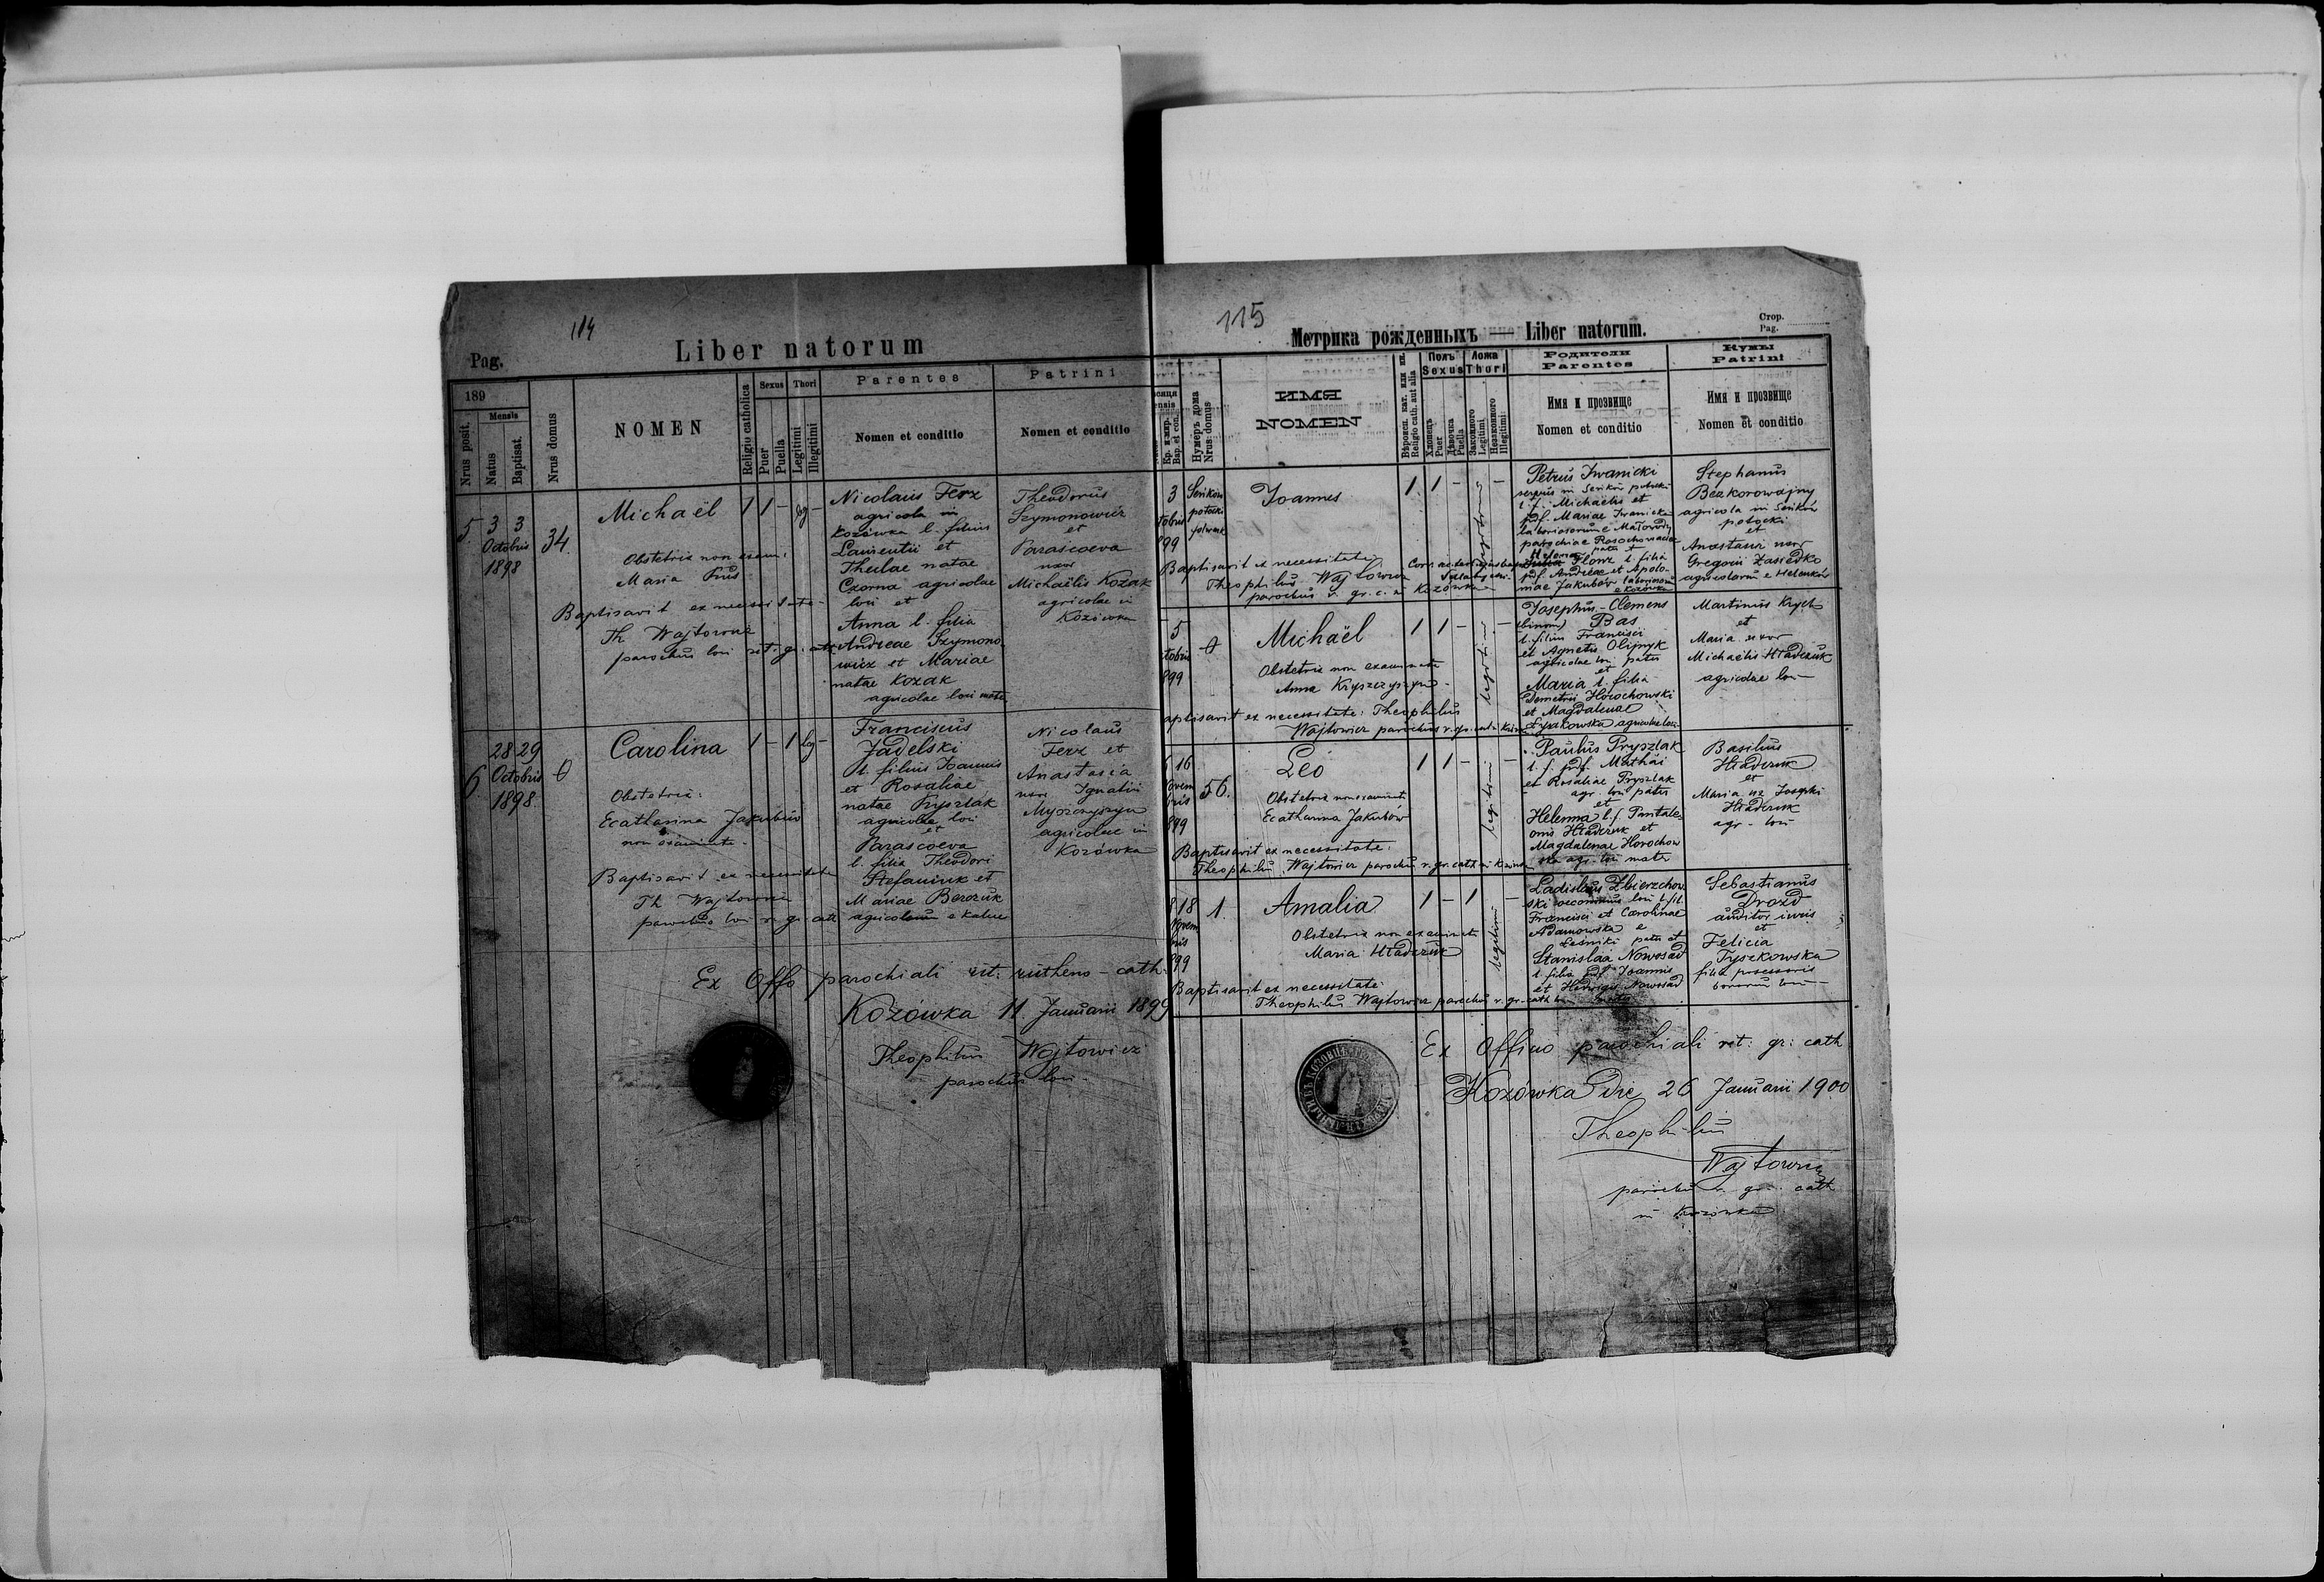 114
Pag.
Liber natorum
189
Nrus posit.
Mensis
Natus
Baptisat.
Nrus domus
NOMEN
Religio catholica
Sexus
Puer
Puella
Thori
Legitimi
Illegitimi
Parentes
Nomen et conditio
Patrini
Nomen et conditio
5. 3 3
Octobris
1898
34.
Michaël 1 1 - leg -
Obstetrix non exam:
Maria Prus
Baptisavit ex necessitate
Th Wajtowicz
parochus loci rit. gr. cath.
Nicolaus Ferz
agricola in
Kozówka l. filius
Laurentii et
Theclae natae
Czorna agricolae
loci et
Anna l. filia
Andreae Szymono-
wicz et Mariae
natae Kozak
agricolae loci mater
Theodorus
Szymonowicz
et
Parascoeva
uxor
Michaëlis Kozak
agricolae in
Kozówka
6. 28 29
Octobris
1898
0
Carolina 1 - 1 leg -
Obstetrix:
Ecatharina Jakubów
non examinata
Baptisavit ex necessitate
Th Wajtowicz
parochus loci r. gr. cath
Franciscus
Jadelski
l. filius Joannis
et Rosaliae
natae Pryszlak
agricolae loci
et
Parascoeva
l. filia Theodori
Stefaniuk et
Mariae Berezuk
agricolarum e
Nicolaus
Ferz et
Anastasia
uxor Ignatii
Myszczyszyn
agricolae in
Kozówka
Ex Offo parochiali rit: rutheno-cath.
Kozówka 11. Januarii 1899
Theophilus Wajtowicz
parochus loci
115
Метрика рожденныхъ — Liber natorum.
Стор.
Pag.
Кр. и мир.
Bap. et con.
Нумеръ дома
Nrus domus
ИМЯ
NOMEN
Вѣроисп. кат. или ин.
Religio cath. aut alia
Полъ
Sexus
Хлопецъ
Puer
Дѣвочка
Puella
Ложа
Thori
Законного
Legitimi
Незаконного
Illegitimi
Родители
Parentes
Имя и прозвище
Nomen et conditio
Кумы
Patrini
Имя и прозвище
Nomen et conditio
3
tobris
899
Seńków
potocki
folwark
Joannes 1. 1 - legitimi -
Baptisavit ex necessitate
Theophilus Wajtowicz
parochus r. gr. c. in Kozówka
Petrus Iwanicki
servus in Seńków potocki
l. f. Michaëlis et
pdf. Mariae Iwanicka
parochiae Rosochowaciec
Helena
l. filia
pdf. Andreae et Apolo-
niae Jakubów
e Kozówka
Stephanus
Bezkorowajny
agricola in Seńków
potocki
et
Anastasia uxor
Gregorii Zasiedko
agricolarum e Helenków
5
tobris
899
0
Michaël 1 1 - legitimi -
Obstetrix non examinata
Anna Kryszczyszyn
aptisavit ex necessitate: Theophilus
Wajtowicz parochus r. gr. cath
Josephus-Clemens
(binom) Bas
l. filius Francisci
et Agnetis Olijnyk
agricolae loci pater
et
Maria l. filia
Demetrii Horochowski
et Magdalenae
Łysakowska agricolae loci
Martinus Krych
et
Maria uxor
Michaëlis Hładczuk
agricolae loci
16
ovem
bris
899
56.
Leo 1 1 - legitimi -
Obstetrix non examinata
Ecatharina Jakubów
Baptisavit ex necessitate:
Theophilus Wajtowicz parochus r. gr. cath in Kozówka
Paulus Pryszlak
l. f. pdf. Mathäi
et Rosaliae Pryszlak
agr. loci pater
et
Helenna l. f. Pantale-
onis Hładczuk et
Magdalenae Horochow
ska agr. loci mater
Basilius
Hładczuk
et
Maria ux Josephi
Hładczuk
agr. loci
18
Novem
bris
899
1.
Amalia 1 - 1 legitimi -
Obstetrix non examinata
Maria Hładczuk
Baptisavit ex necessitate:
Theophilus Wajtowicz parochus r. gr. cath loci
Ladislaus Zbierzchow-
ski oeconomus loci l. fil.
Francisci et Carolinae
Adamowska e
Leśniki pater et
Stanislaa Nowosad
l. filia pdf Joannis
et Hedwigis Nowosad
Sebastianus
Drozd
auditor iuris
et
Felicia
Tyszkowska
filia possessoris
bonorum loci
Ex Officio parochiali rit: gr: cath
Kozówka die 26 Januarii 1900
Theophilus
Wajtowicz
parochus r. gr. cath
in Kozówka